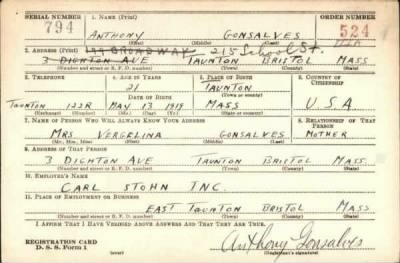 SERIAL NUMBER 1. NAME (Print) ORDER NUMBER
794 ANTHONY GONSALVES 524
(First) (Middle) (Last)
2. ADDRESS (Print) BROADWAY 215 School St.
3 DIGHTON AVE TAUNTON BRISTOL MASS
(Number and street or R. F. D. number) (Town) (County) (State)
3. TELEPHONE 4. AGE IN YEARS 5. PLACE OF BIRTH 6. COUNTRY OF CITIZENSHIP
21 TAUNTON
DATE OF BIRTH (Town or county)
TAUNTON 122R MAY 13 1919 MASS U.S.A
(Exchange) (Number) (Mo.) (Day) (Yr.) (State or country)
7. NAME OF PERSON WHO WILL ALWAYS KNOW YOUR ADDRESS 8. RELATIONSHIP OF THAT PERSON
MRS VERGELINA GONSALVES MOTHER
(Mr., Mrs., Miss) (First) (Middle) (Last)
9. ADDRESS OF THAT PERSON
3 DIGHTON AVE TAUNTON BRISTOL MASS.
(Number and street or R. F. D. number) (Town) (County) (State)
10. EMPLOYER'S NAME
CARL STOHN INC.
11. PLACE OF EMPLOYMENT OR BUSINESS
EAST TAUNTON BRISTOL MASS
(Number and street or R. F. D. number) (Town) (County) (State)
I AFFIRM THAT I HAVE VERIFIED ABOVE ANSWERS AND THAT THEY ARE TRUE.
REGISTRATION CARD
D. S. S. Form 1 (over) Anthony Gonsalves
(Registrant's signature)